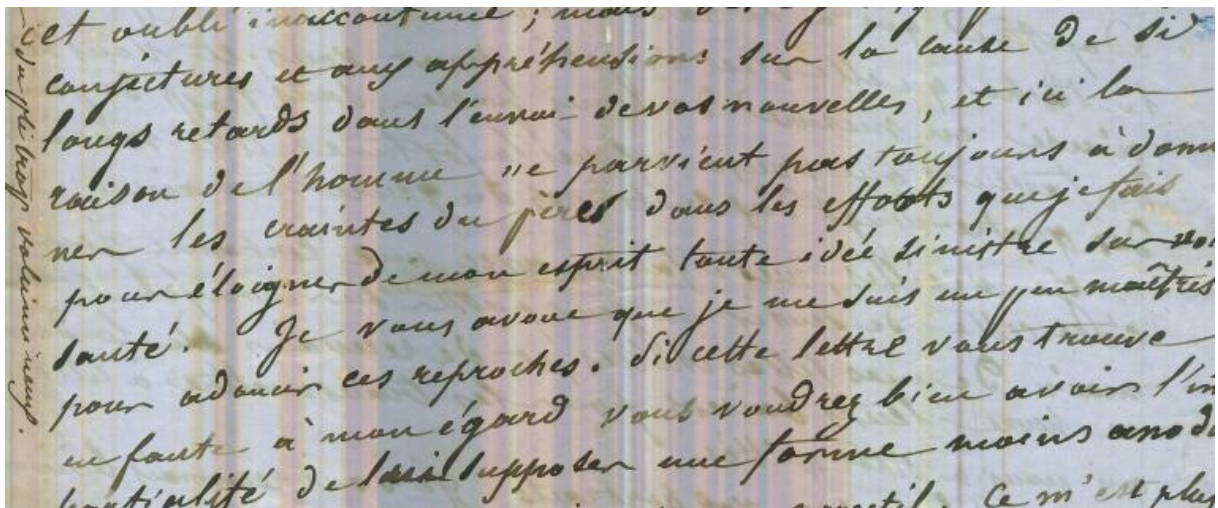 et oubli inaccoutumé ; mais
conjectures et aux appréhensions sur la cause de si
longs retards dans l'envoi de vos nouvelles, et ici la
raison de l'homme ne parvient pas toujours à domi
ner les craintes du père dans les efforts que je fais
pour éloigner de mon esprit toute idée sinistre sur vo
santé. Je vous avoue que je me suis un peu maîtris
pour adoucir ces reproches. Si cette lettre vous trouve
en faute à mon égard vous voudrez bien avoir l'im
partialité de lui supposer une forme moins anod
Ce m'est plus
du pli trop volumineux.